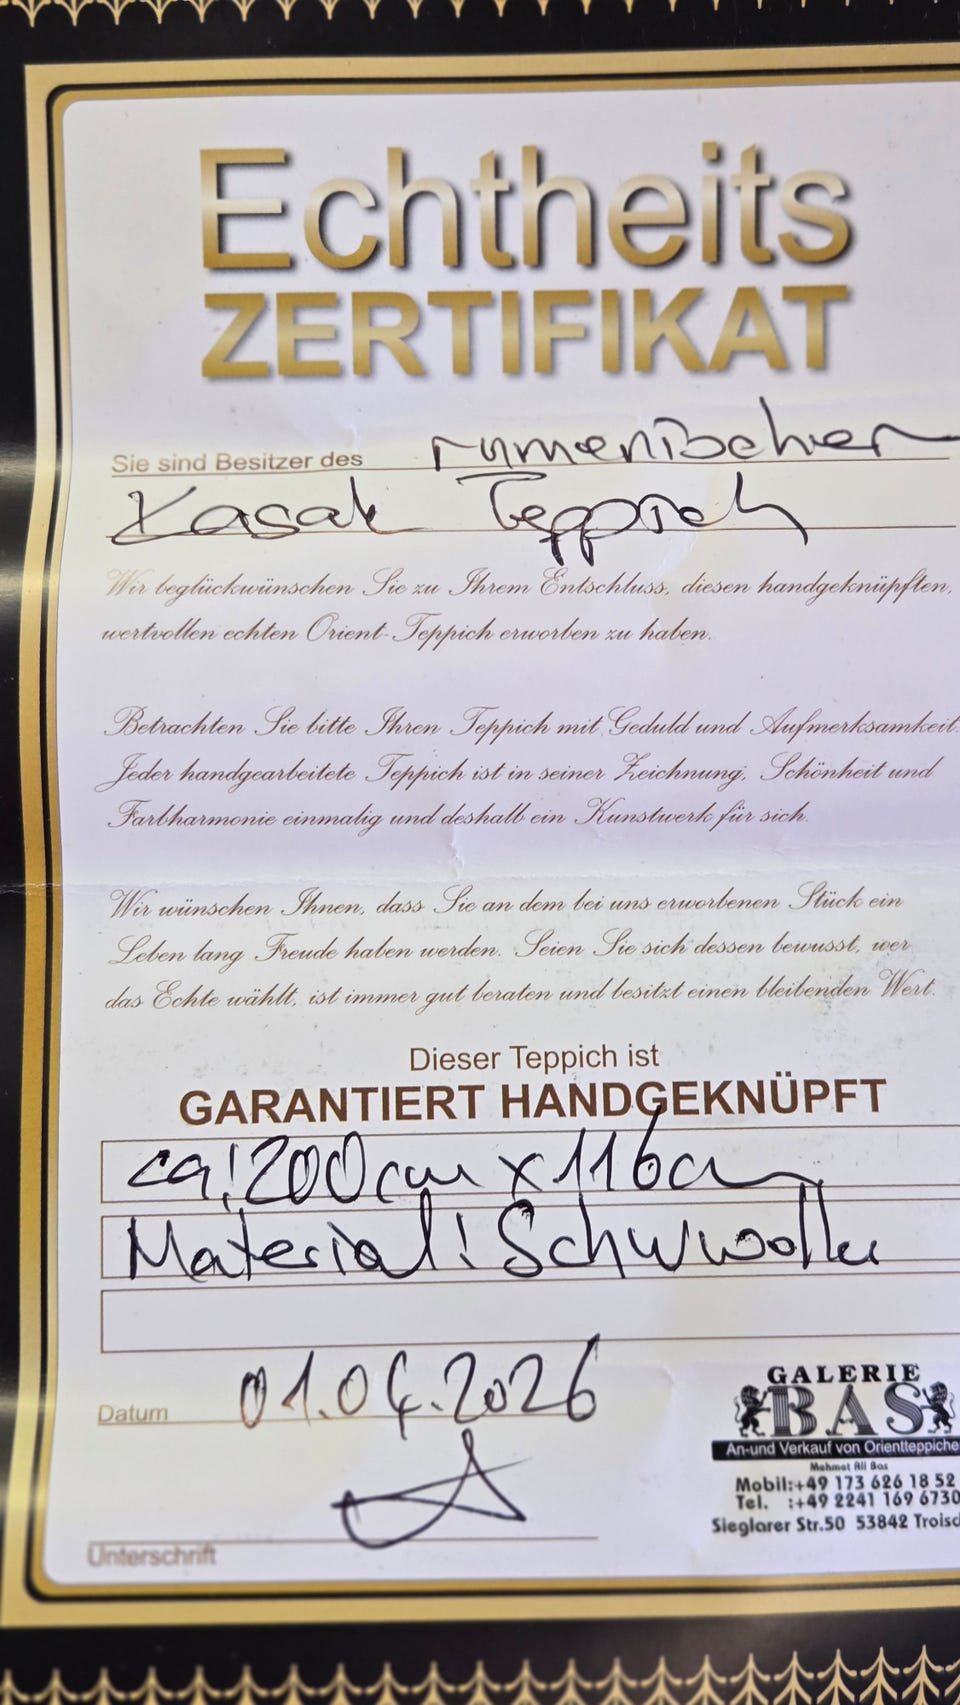 Echtheits
ZERTIFIKAT
Sie sind Besitzer des rumenischer
Kasak Teppich
Wir beglückwünschen Sie zu Ihrem Entschluss, diesen handgeknüpften,
wertvollen echten Orient-Teppich erworben zu haben.
Betrachten Sie bitte Ihren Teppich mit Geduld und Aufmerksamkeit.
Jeder handgearbeitete Teppich ist in seiner Zeichnung, Schönheit und
Farbharmonie einmalig und deshalb ein Kunstwerk für sich.
Wir wünschen Ihnen, dass Sie an dem bei uns erworbenen Stück ein
Leben lang Freude haben werden. Seien Sie sich dessen bewusst, wer
das Echte wählt, ist immer gut beraten und besitzt einen bleibenden Wert.
Dieser Teppich ist
GARANTIERT HANDGEKNÜPFT
ca: 200cm x 116cm
Material: Schuwolle
Datum 01.04.2026
Unterschrift
GALERIE
BAS
An-und Verkauf von Orientteppiche
Mehmet Ali Bas
Mobil:+49 173 626 18 52
Tel. :+49 2241 169 6730
Sieglarer Str.50 53842 Troisd